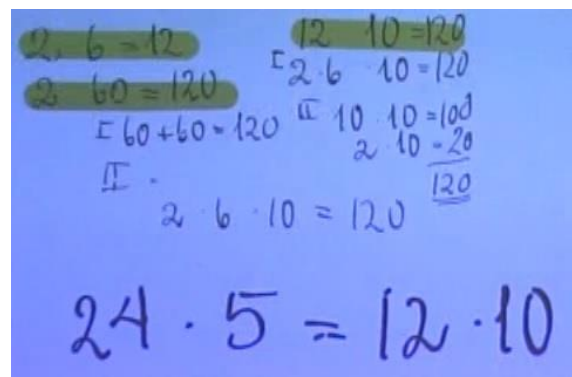 2 · 6 = 12
2 60 = 120
I 60 + 60 = 120
II ·
2 · 6 · 10 = 120
12 10 = 120
I 2 · 6 · 10 = 120
II 10 · 10 = 100
2 · 10 = 20
120
24 · 5 = 12 · 10